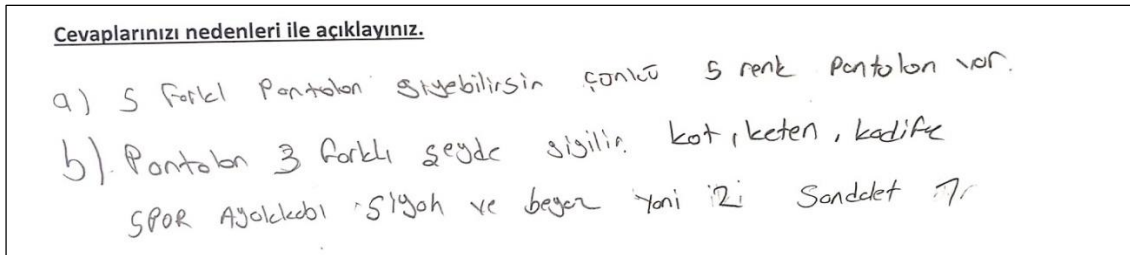 Cevaplarınızı nedenleri ile açıklayınız.
a) 5 farklı Pantolon giyebilirsin çünkü 5 renk Pantolon var.
b). Pantolon 3 farklı şeyde gigilir kot, keten, kadife
SPOR Ayakkabı siyah ve beyaz yani 2i Sandalet